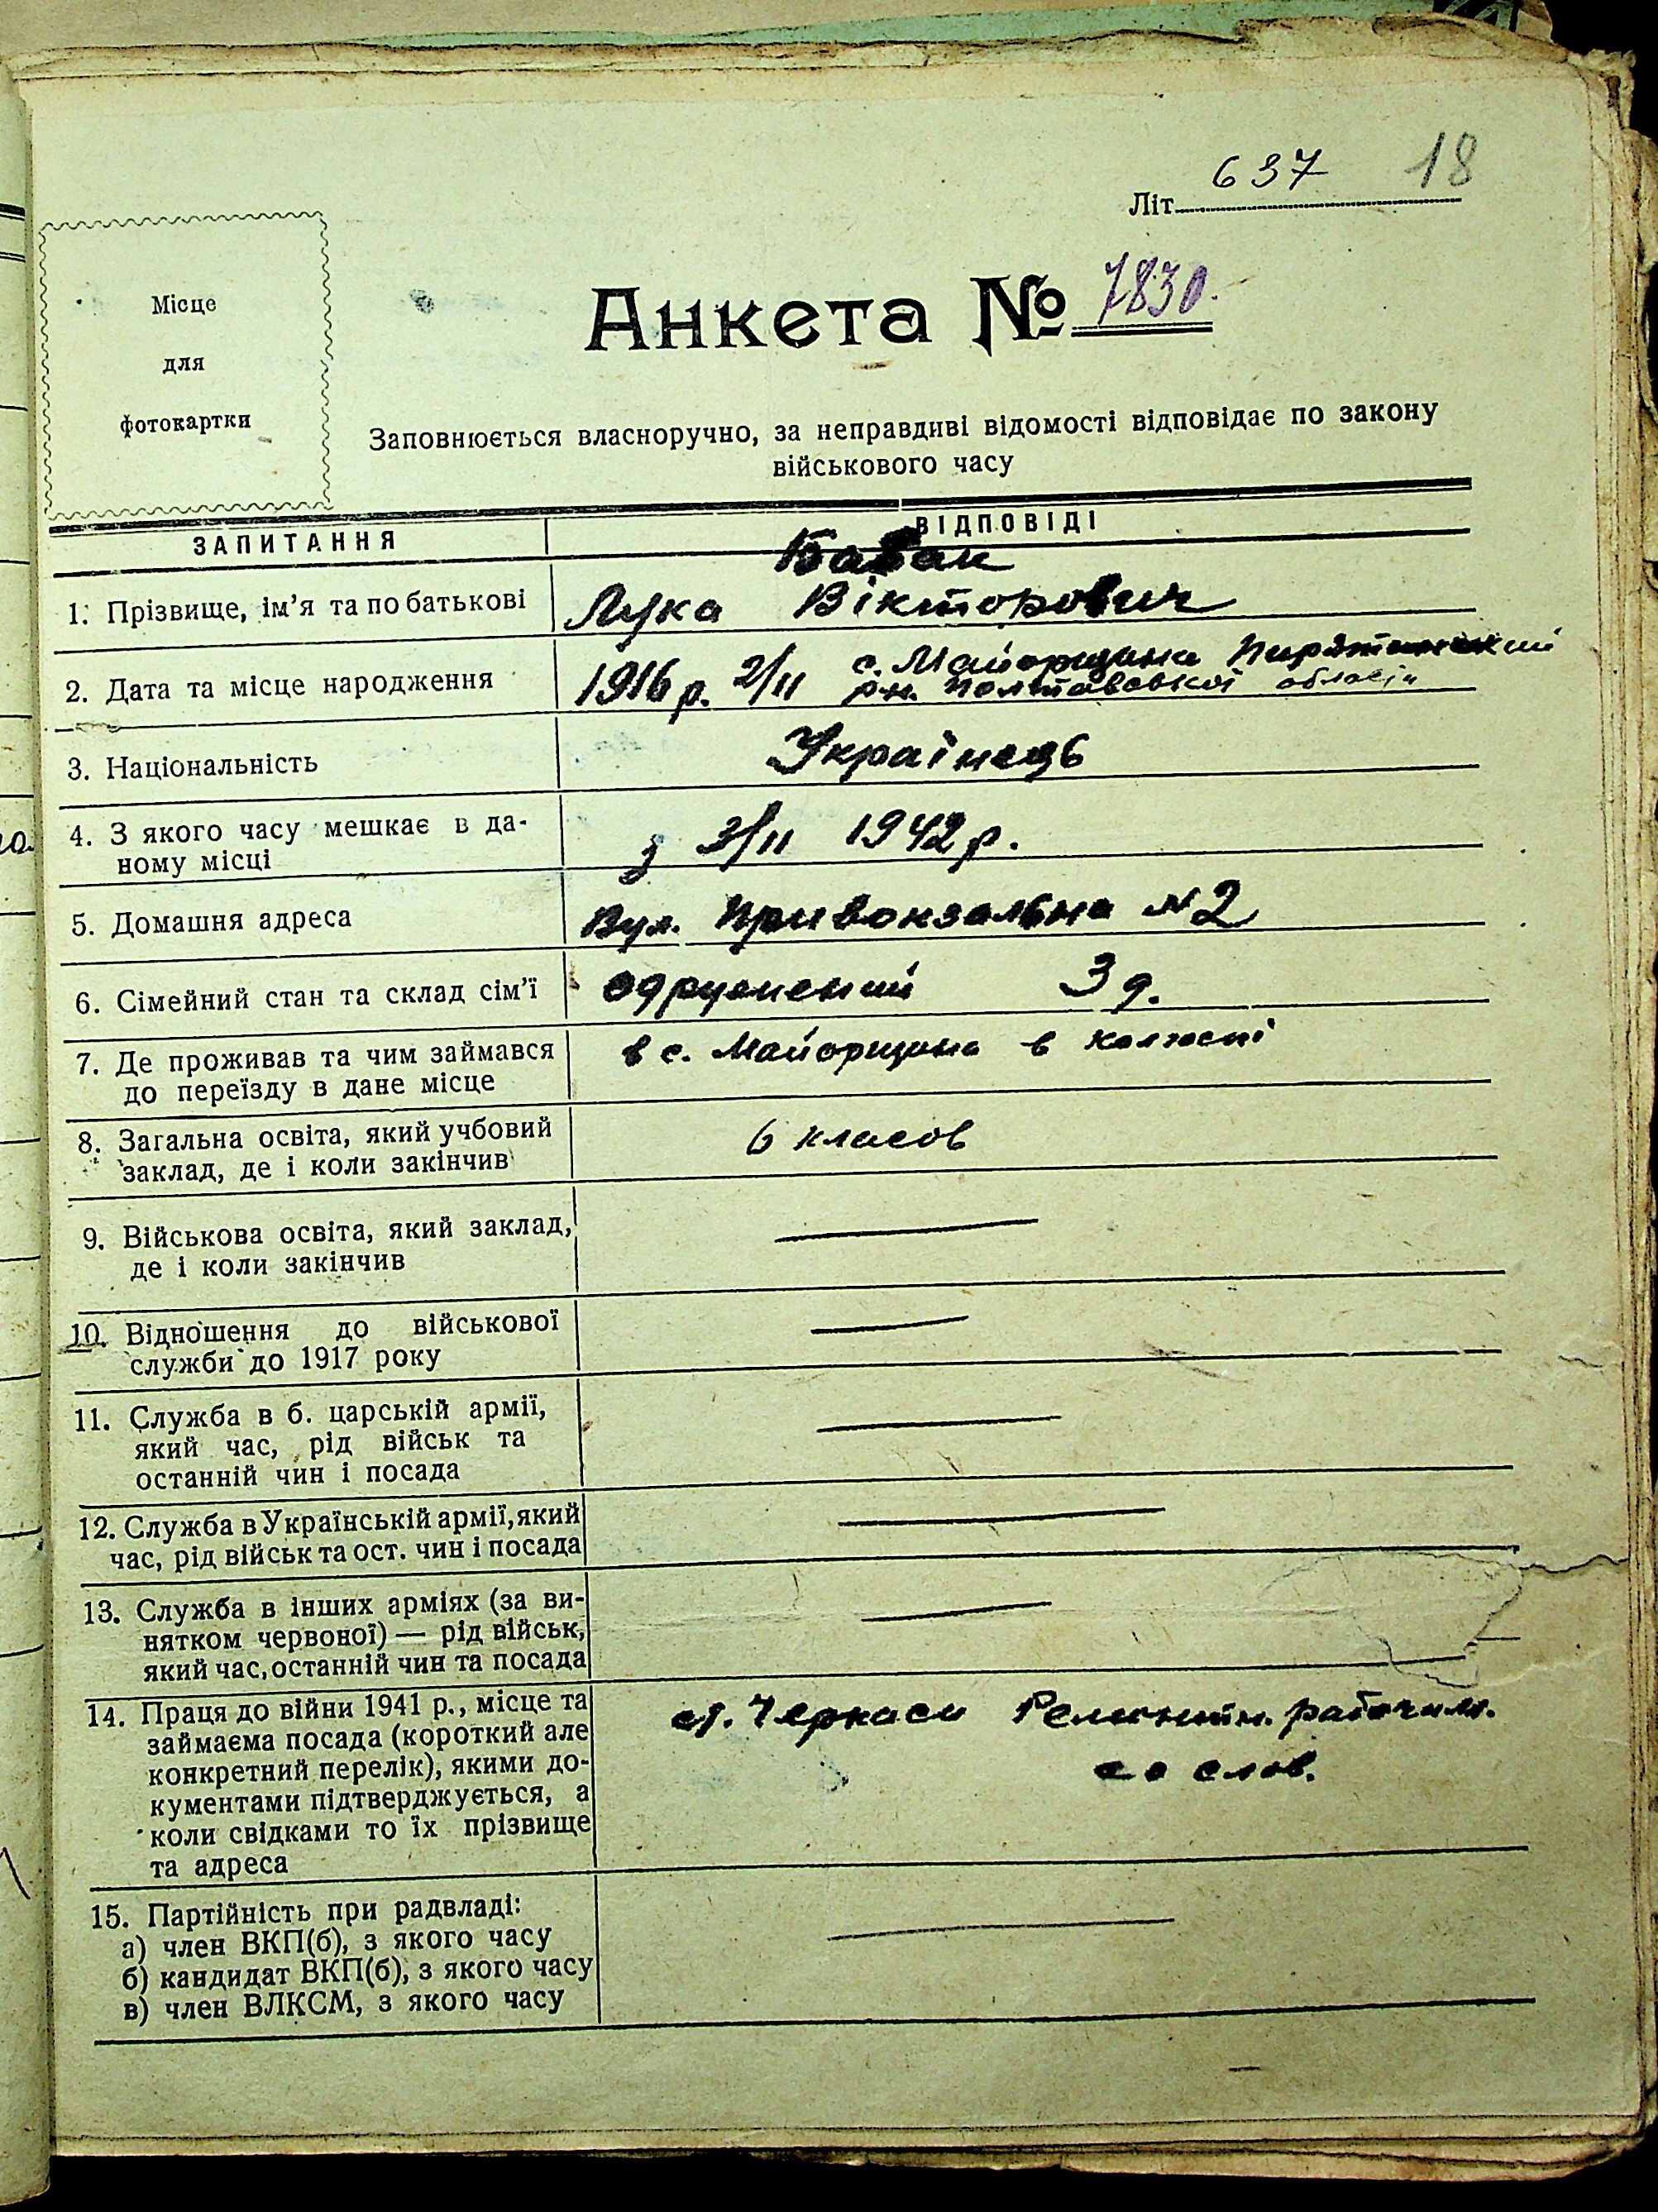 637 18
Літ.
Місце
для
фотокартки
Анкета № 7830.
Заповнюється власноручно, за неправдиві відомості відповідає по закону
військового часу
ЗАПИТАННЯ
ВІДПОВІДІ
1. Прізвище, ім'я та по батькові
Лука Вікторович
2. Дата та місце народження
1916 р. 2/II с. Майорщина Пирятинський
рн. Полтавської області
3. Національність
Українець
4. З якого часу мешкає в да-
ному місці
з 3/II 1942 р.
5. Домашня адреса
Вул. Привокзальна № 2
6. Сімейний стан та склад сім'ї
одружений 3 д.
7. Де проживав та чим займався
до переїзду в дане місце
в с. Майорщина в колгоспі
8. Загальна освіта, який учбовий
заклад, де і коли закінчив
6 класов
9. Військова освіта, який заклад,
де і коли закінчив
10. Відношення до військової
служби до 1917 року
11. Служба в б. царській армії,
який час, рід військ та
останній чин і посада
12. Служба в Українській армії, який
час, рід військ та ост. чин і посада
13. Служба в інших арміях (за ви-
нятком червоної) — рід військ,
який час, останній чин та посада
14. Праця до війни 1941 р., місце та
займаєма посада (короткий але
конкретний перелік), якими до-
кументами підтверджується, а
коли свідками то їх прізвище
та адреса
ст. Черкаси Ремонтн. рабочим.
со слов.
15. Партійність при радвладі:
а) член ВКП(б), з якого часу
б) кандидат ВКП(б), з якого часу
в) член ВЛКСМ, з якого часу